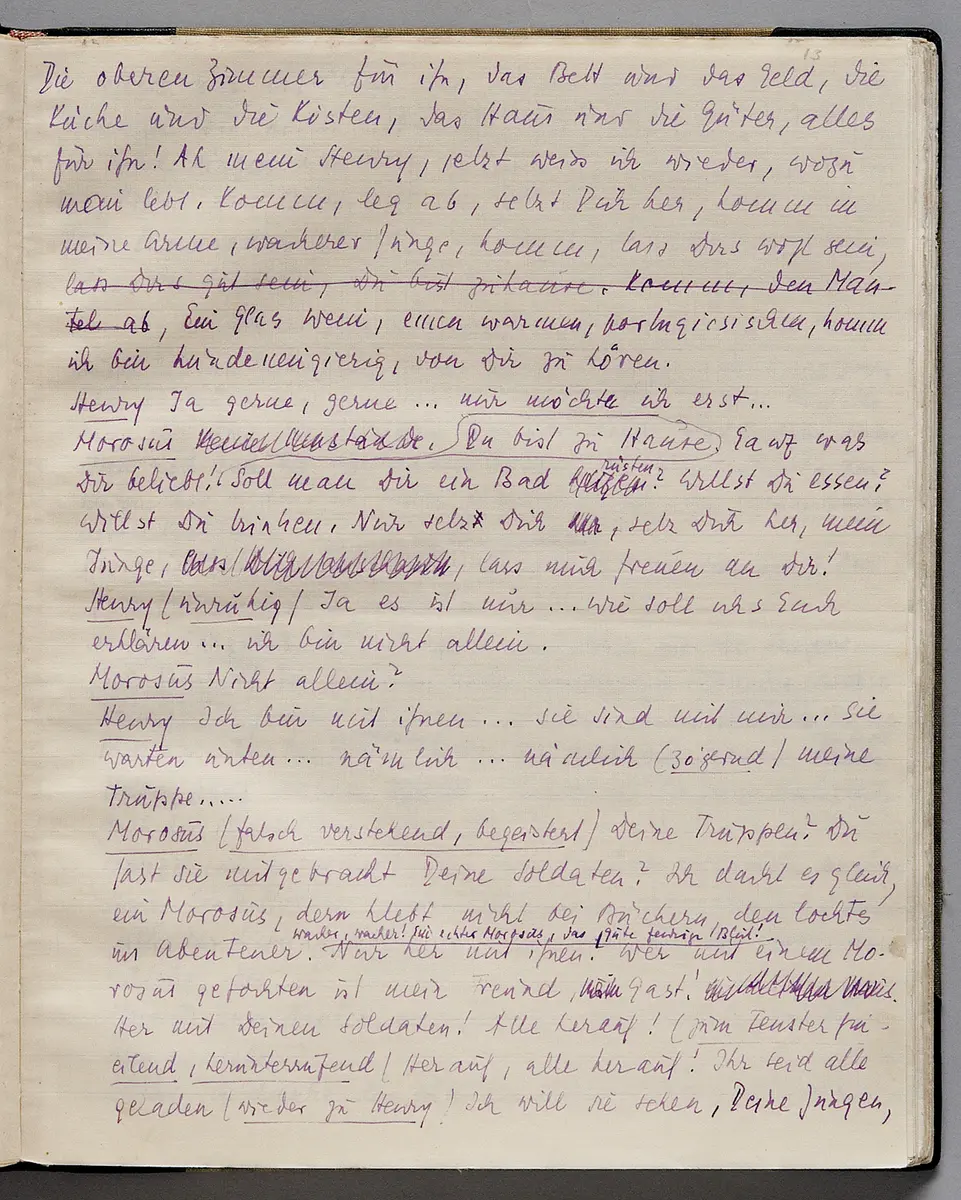 13
Die oberen Zimmer für ihn, das Bett und das Geld, die
Küche und die Kisten, das Haus und die Güter, alles
für ihn! Ah mein Henry, jetzt weiss ich wieder, wozu
man lebt. Komm, leg ab, setzt Dich her, komm in
meine Arme, wackerer Junge, komm, lass Dirs wohl sein,
lass Dirs gut sein, Du bist zuhause. Komm, den Man-
tel ab, Ein Glas Wein, einen warmen, portugiesischen, komm
ich bin hundeneugierig, von Dir zu hören.
Henry Ja gerne, gerne ... nur möchte ich erst...
Morosus Keine Umstände. Du bist zu Hause. Ganz was
Dir beliebt! Soll man Dir ein Bad rüsten? Willst Du essen?
Willst Du trinken. Nur setz Dich, setz Dich her, mein
Junge, lass, lass mich freuen an Dir!
Henry (unruhig) Ja es ist nur ... wie soll ichs Euch
erklären... ich bin nicht allein.
Morosus Nicht allein?
Henry Ich bin mit ihnen ... sie sind mit mir ... sie
warten unten ... nämlich ... nämlich (zögernd) meine
Truppe.....
Morosus (falsch verstehend, begeistert) Deine Truppen? Du
hast sie mitgebracht Deine Soldaten? Ich dacht es gleich,
ein Morosus, dern klebt nicht bei Büchern, den lockts
wacker, wacker! Ein echter Morosus, das gute feurige Blut!
ins Abenteuer. Nur her mit ihnen! Wer mit einem Mo-
rosus gefochten ist mein Freund, mein Gast!
Her mit Deinen Soldaten! Alle herauf! (zum Fenster hin-
eilend, herunterrufend) Herauf, alle herauf! Ihr seid alle
geladen (wieder zu Henry) Ich will sie sehen, Deine Jungen,